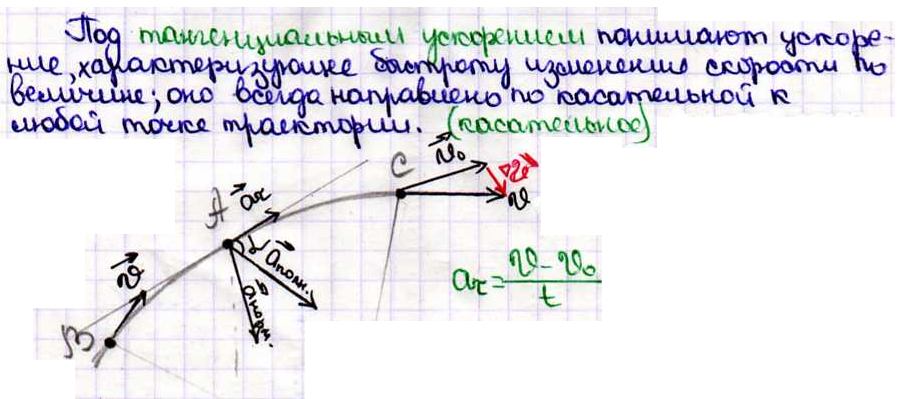 Под тангенциальным ускорением понимают ускоре-
ние, характеризующее быстроту изменения скорости по
величине; оно всегда направлено по касательной к
любой точке траектории. (касательное)
C
v⃗₀
Δv⃗
v⃗
A
a⃗τ
α
a⃗полн.
a⃗норм.
v⃗
B
aτ = (v - v₀) / t